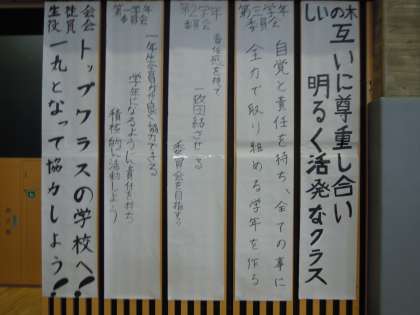 しいの木
互いに尊重し合い
明るく活発なクラス
第三学年
委員会
自覚と責任を持ち、全ての事に
全力で取り組める学年を作る
第2学年
委員会
責任感を持って
一致団結させる
委員会を目指す。
第一学年
委員会
一年生全員が仲良く協力できる
学年になるように責任を持ち
積極的に活動しよう
生徒会
役員会
トップクラスの学校へ!
一丸となって協力しよう!